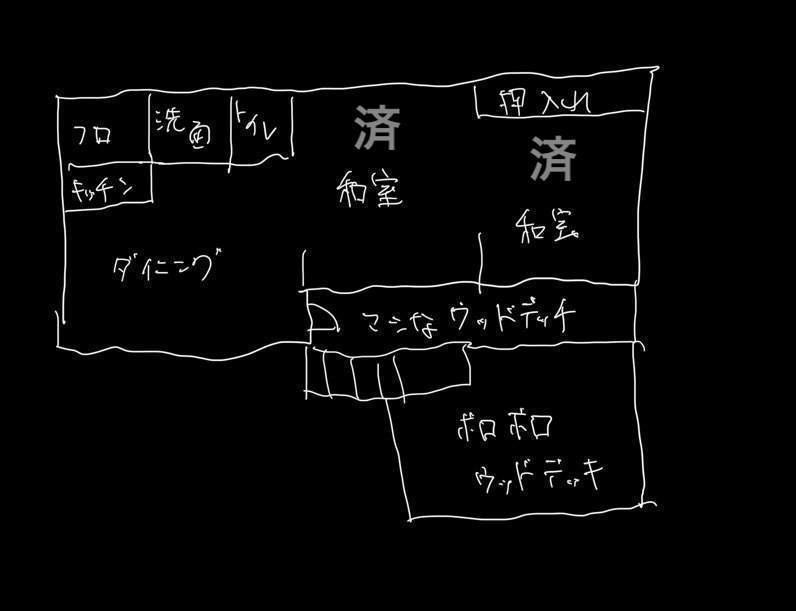 フロ
洗面
トイレ
済
押入れ
済
キッチン
和室
和室
ダイニング
マシなウッドデッチ
ボロボロ
ウッドデッキ